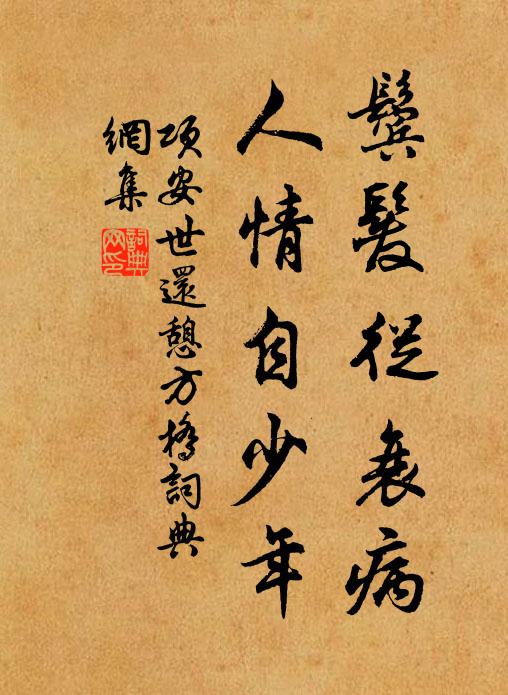 鬢髮從衰病
人情自少年
項安世還憩方橋詞典
網集
詞典
网印